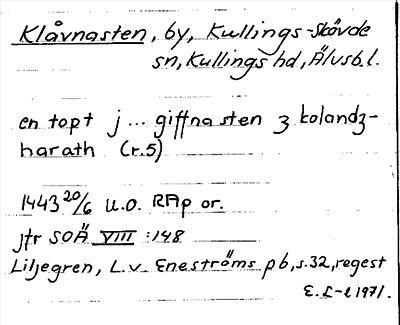 Klåvnasten, by, Kullings-Skövde
sn, Kullings hd, Älvsb.l.
en topt j... giffnasten ʒ kolandʒ-
harath (r.5)
1443 20/6 u.o. RAp or.
jfr SOÄ VIII :148
Liljegren, L.v. Eneströms pb, s.32, regest
E. L-l 1971.